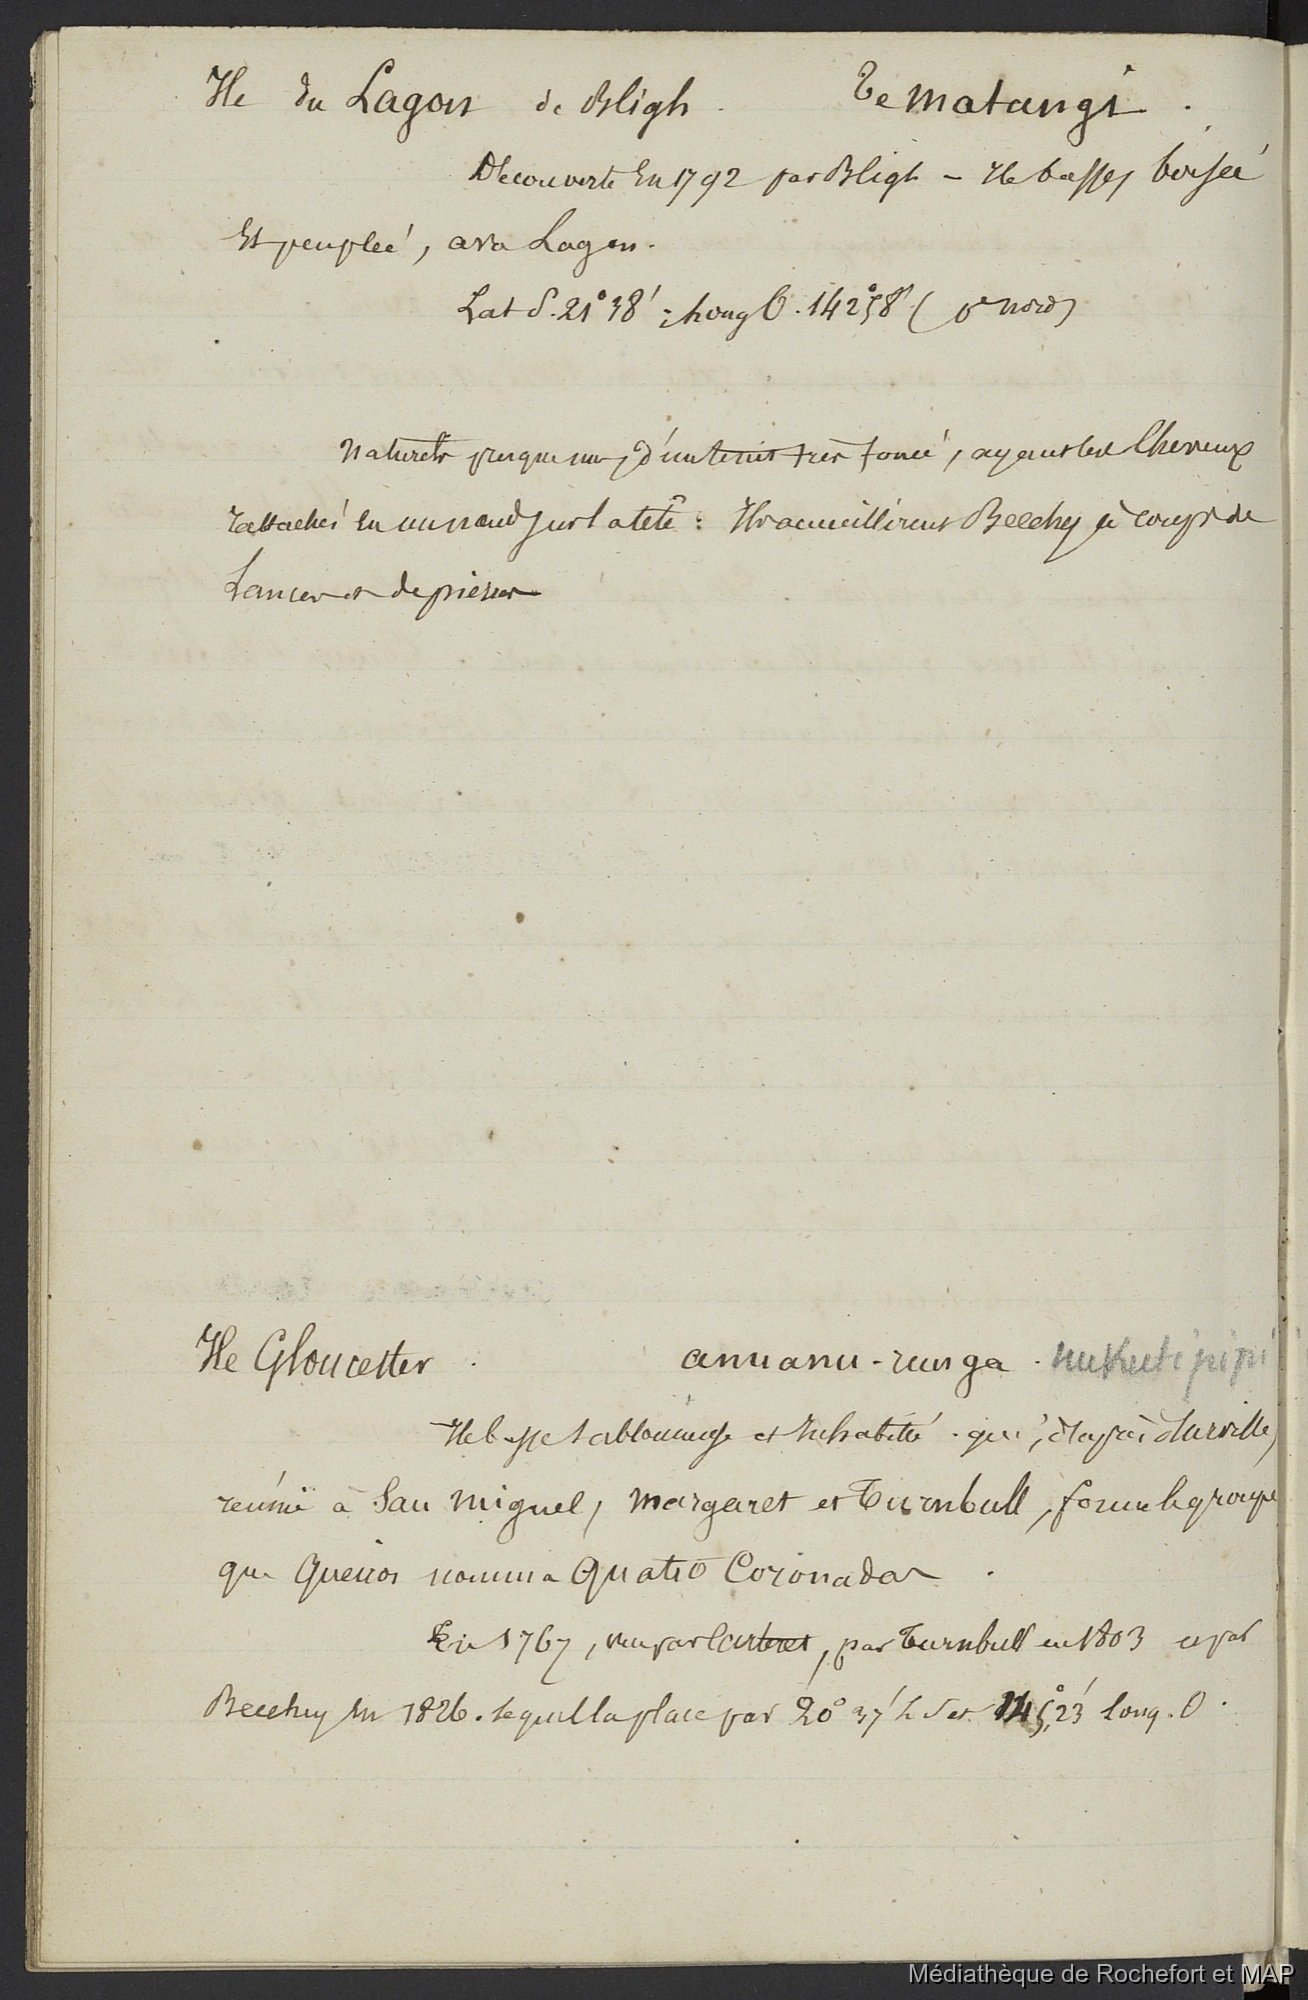 Ile du Lagon de Bligh. Te matangi.
Découverte En 1792 par Bligh – Ile basse, boisée
Et peuplée, avec Lagon.
Lat S. 21° 38' ; Long O. 142° 58' ( pte nord)
Naturels presque nus, d'un teint très foncé, ayant les Cheveux
rattachés En un nœud sur la tête : Ils accueillirent Beechey à coups de
Lances et de pierres
Ile Gloucester. anuanu-runga. nukutipipi
Ile basse sablonneuse et Inhabitée. qui, d'après d'Urville,
réunie à San Miguel, Margaret et Turnbull, forme le groupe
que Queiros nomma Quatro Coronadas.
En 1767, vue par Carteret, par Turnbull en 1803 et par
Beechey En 1826. lequel la place par 20° 37' L S et 145° 23' Long. O.